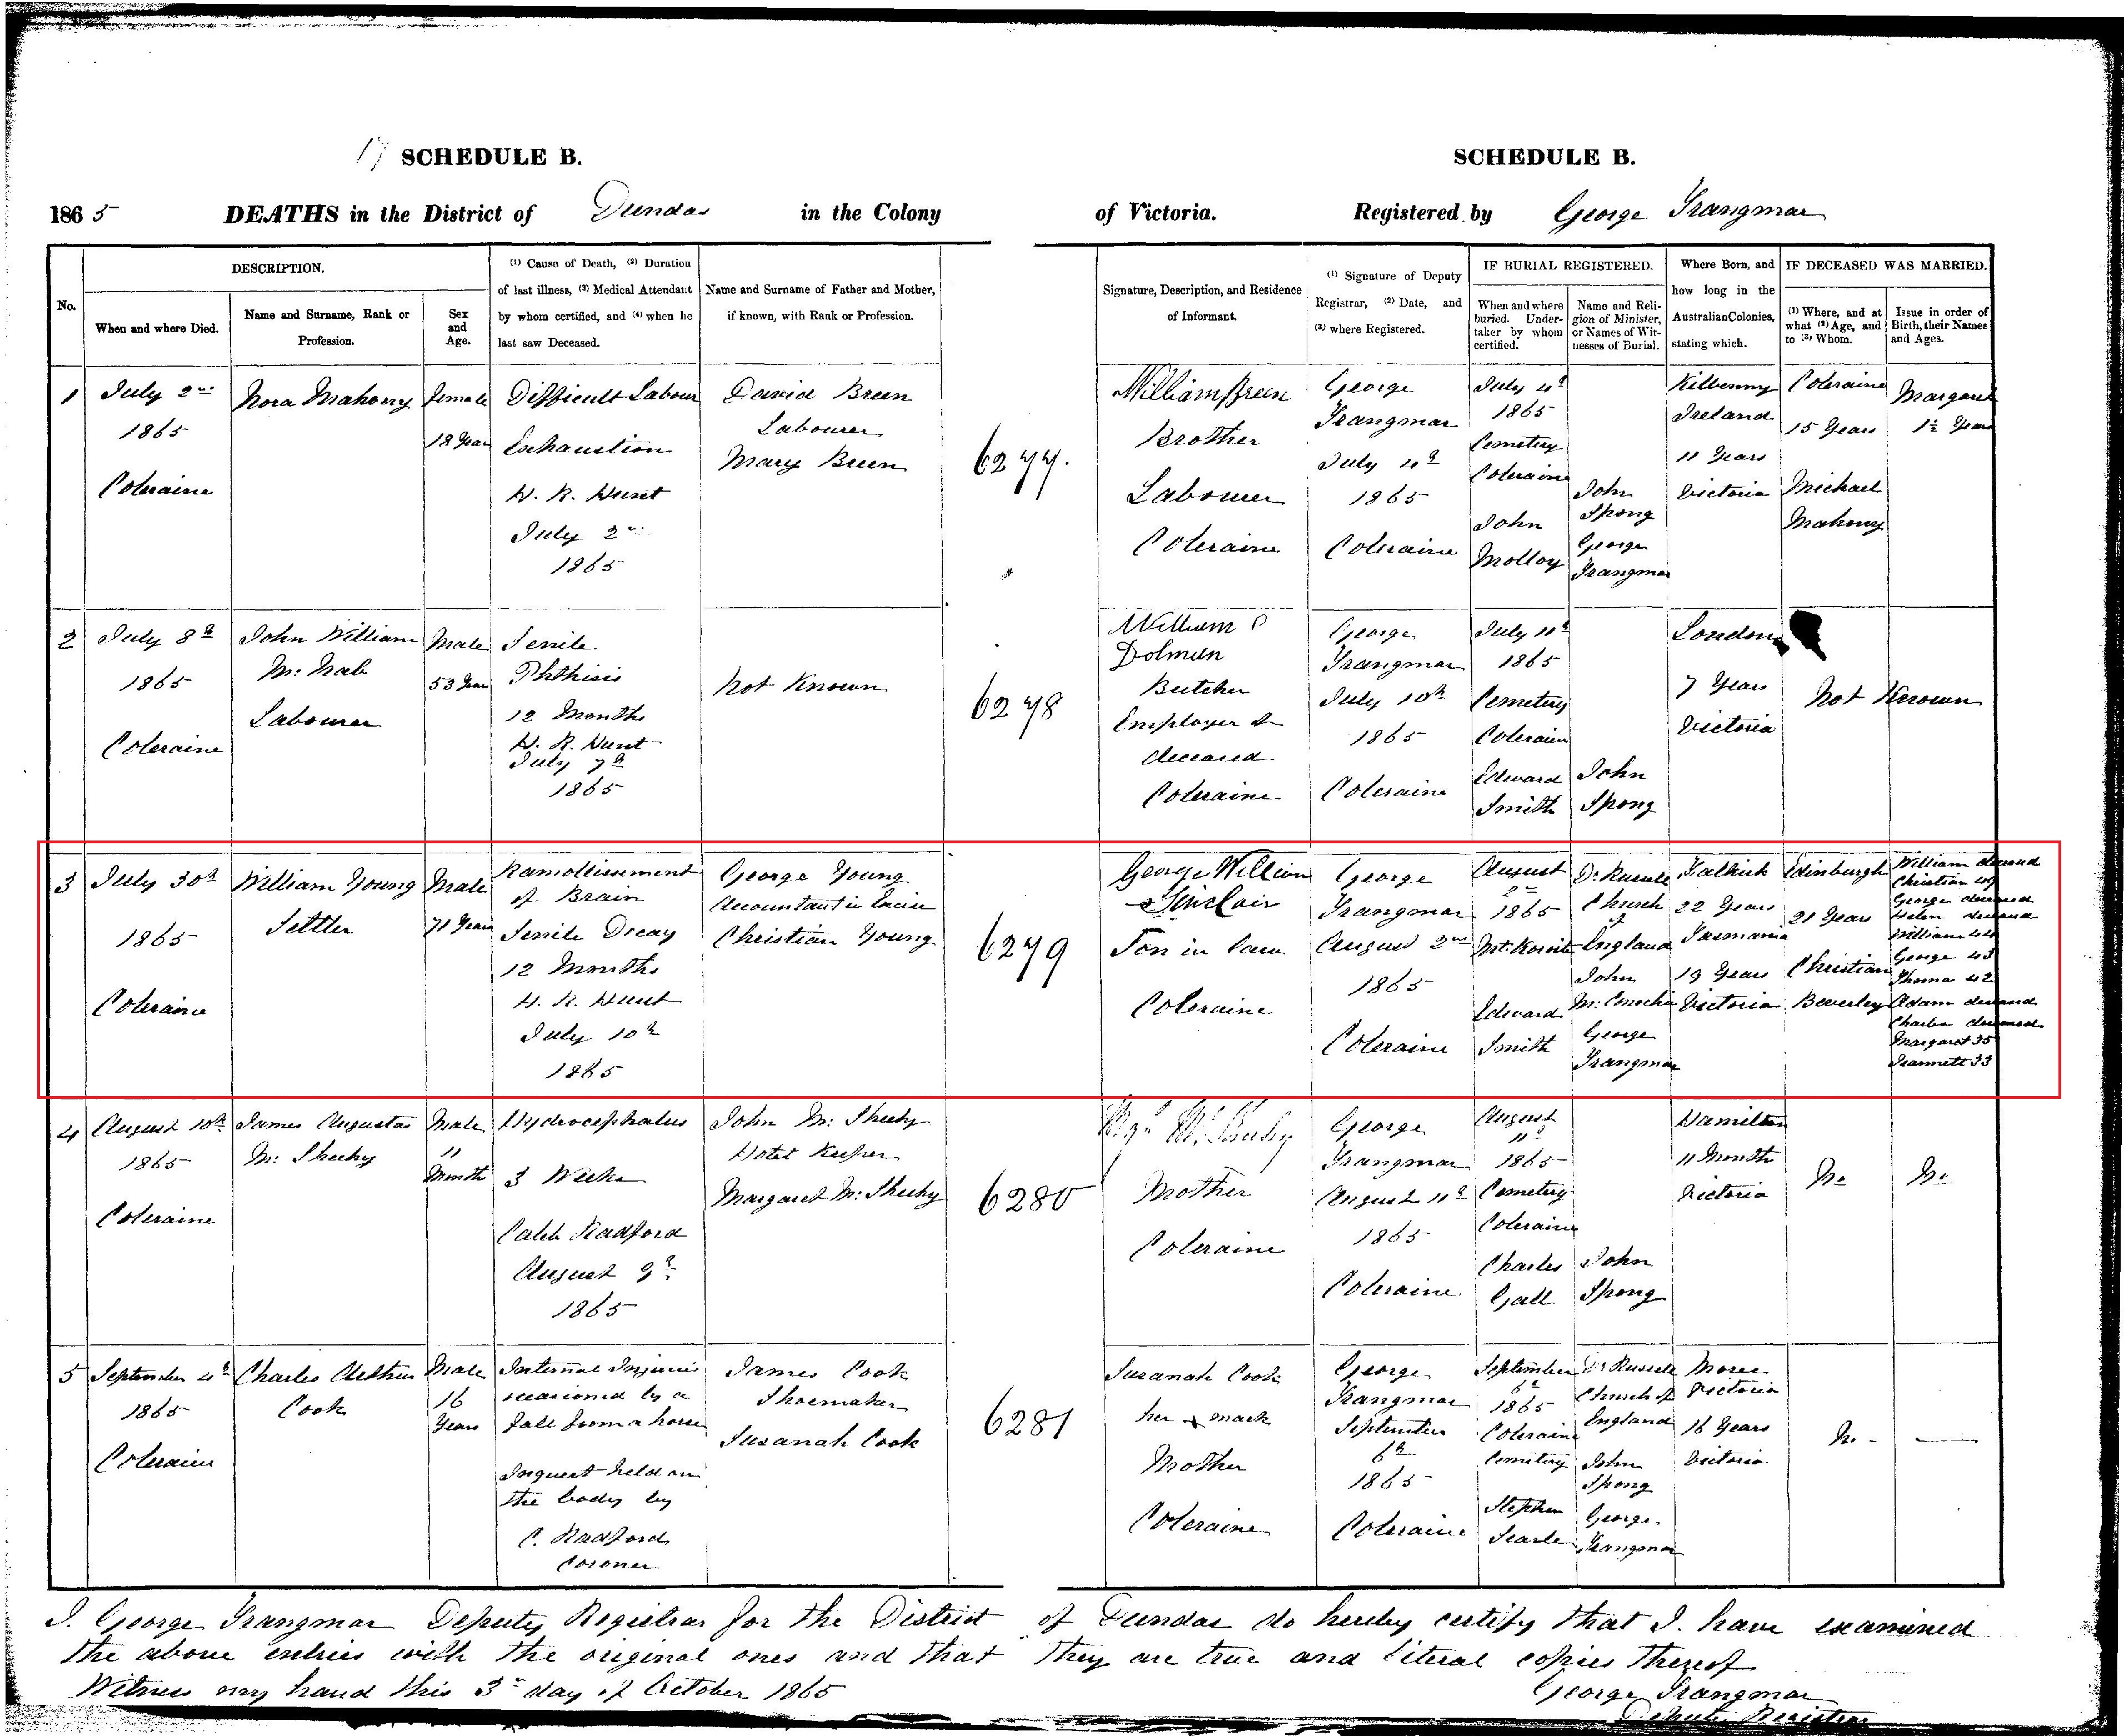 17 SCHEDULE B.
SCHEDULE B.
1865 DEATHS in the District of Dundas in the Colony
of Victoria. Registered by George Trangmar
No.
DESCRIPTION.
When and where Died.
Name and Surname, Rank or
Profession.
Sex
and
Age.
(1) Cause of Death, (2) Duration
of last illness, (3) Medical Attendant
by whom certified, and (4) when he
last saw Deceased.
Name and Surname of Father and Mother,
if known, with Rank or Profession.
Signature, Description, and Residence
of Informant.
(1) Signature of Deputy
Registrar, (2) Date, and
(3) where Registered.
IF BURIAL REGISTERED.
When and where
buried. Under-
taker by whom
certified.
Name and Reli-
gion of Minister,
or Names of Wit-
nesses of Burial.
Where Born, and
how long in the
Australian Colonies,
stating which.
IF DECEASED WAS MARRIED.
(1) Where, and at
what (2) Age, and
to (3) Whom.
Issue in order of
Birth, their Names
and Ages.
1
July 2nd
1865
Coleraine
Nora Mahony
Female
18 Years
Difficult Labour
Exhaustion
H. R. Hunt
July 2nd
1865
David Breen
Labourer
Mary Breen
6277.
William Breen
Brother
Labourer
Coleraine
George
Trangmar
July 4th
1865
Coleraine
July 4th
1865
Cemetery
Coleraine
John
Molloy
John
Spong
George
Trangmar
Kilkenny
Ireland
11 Years
Victoria
Coleraine
15 Years
Michael
Mahony
Margaret
1½ Years
2
July 8th
1865
Coleraine
John William
Mc Nab
Labourer
Male
53 Years
Senile
Phthisis
12 Months
H. R. Hunt
July 7th
1865
Not Known
6278
William
Dolman
Butcher
Employer of
deceased.
Coleraine
George
Trangmar
July 10th
1865
Coleraine
July 11th
1865
Cemetery
Coleraine
Edward
Smith
John
Spong
London
7 Years
Victoria
Not Known
3
July 30th
1865
Coleraine
William Young
Settler
Male
71 Years
Ramollissement
of Brain
Senile Decay
12 Months
H. R. Hunt
July 10th
1865
George Young
Accountant in Excise
Christian Young
6279
George William
Sinclair
Son in law
Coleraine
George
Trangmar
August 2nd
1865
Coleraine
August
2nd
1865
Mt. Koroite
Edward
Smith
Dr Russell
Church
of
England
John
George
Trangmar
Falkirk
22 Years
Tasmania
19 Years
Victoria
Edinburgh
21 Years
Christian
Beverley
William deceased
Christian 49
George deceased
Helen deceased
William 44
George 43
Thomas 42
Adam deceased
Charles deceased
Margaret 35
Jeannett 33
4
August 10th
1865
Coleraine
James Augustas
Mc Sheehy
Male
11
Month
Hydrocephalus
3 Weeks
Caleb Radford
August 9th
1865
John Mc Sheehy
Hotel Keeper
Margaret Mc Sheehy
6280
Mc Sheehy
Mother
Coleraine
George
Trangmar
August 11th
1865
Coleraine
August
11th
1865
Cemetery
Coleraine
Charles
Gall
John
Spong
Hamilton
11 Month
Victoria
No
No
5
September 4th
1865
Coleraine
Charles Arthur
Cook
Male
16
Years
Internal Injuries
occasioned by a
fall from a horse
Inquest held on
the body by
C. Radford
Coroner
James Cook
Shoemaker
Susanah Cook
6281
Susanah Cook
her x mark
Mother
Coleraine
George
Trangmar
September
6th
1865
Coleraine
September
6th
1865
Coleraine
Cemetery
Stephen
Searle
Dr Russell
Church of
England
John
Spong
George
Trangmar
Victoria
16 Years
Victoria
No -
I. George Trangmar Deputy Registrar for the District of Dundas do hereby certify that I. have examined
the above entries with the original ones and that they are true and literal copies thereof
Witness my hand this 3rd day of October 1865
George Trangmar
Deputy Registrar